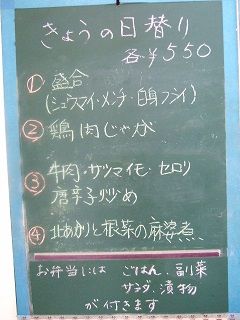 きょうの日替り
各¥550
① 盛合
(シュウマイ・メンチ・白身フライ)
② 鶏肉じゃが
③ 牛肉・サツマイモ・セロリ
唐辛子炒め
④ 北あかりと根菜の麻婆煮
お弁当には ごはん、副菜
サラダ、漬物
が付きます